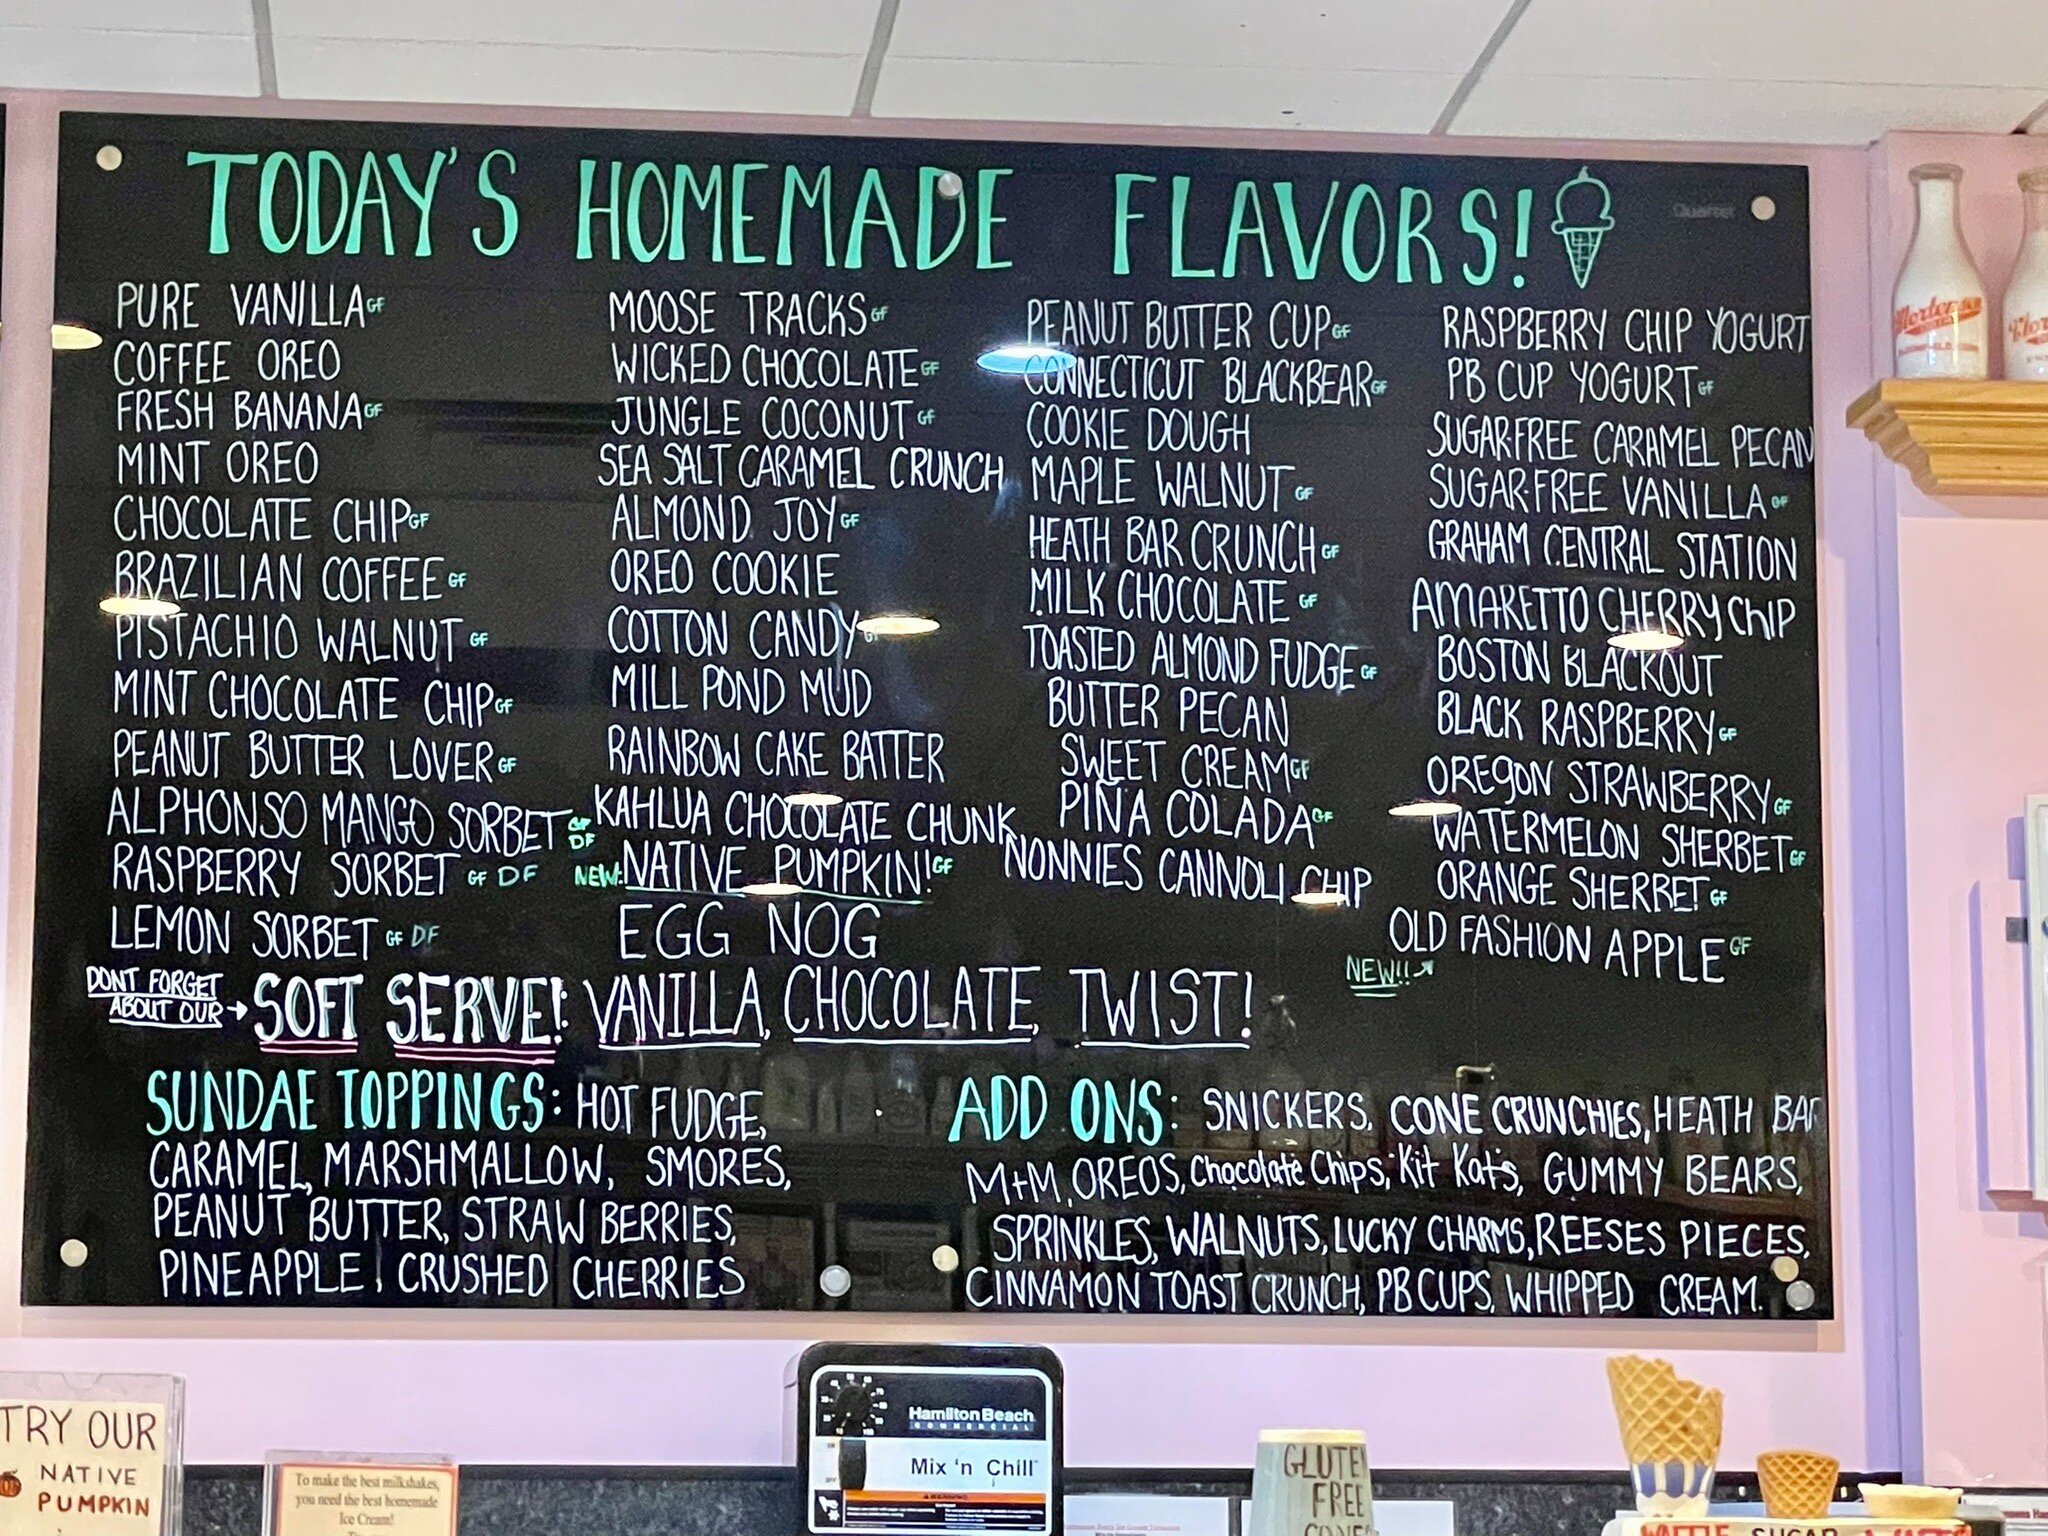 TODAY'S HOMEMADE FLAVORS!
Quartet
PURE VANILLA GF
COFFEE OREO
FRESH BANANA GF
MINT OREO
CHOCOLATE CHIP GF
BRAZILIAN COFFEE GF
PISTACHIO WALNUT GF
MINT CHOCOLATE CHIP GF
PEANUT BUTTER LOVER GF
ALPHONSO MANGO SORBET GF DF
RASPBERRY SORBET GF DF
LEMON SORBET GF DF
MOOSE TRACKS GF
WICKED CHOCOLATE GF
JUNGLE COCONUT GF
SEA SALT CARAMEL CRUNCH
ALMOND JOY GF
OREO COOKIE
COTTON CANDY GF
MILL POND MUD
RAINBOW CAKE BATTER
KAHLUA CHOCOLATE CHUNK
NEW: NATIVE PUMPKIN! GF
EGG NOG
PEANUT BUTTER CUP GF
CONNECTICUT BLACKBEAR GF
COOKIE DOUGH
MAPLE WALNUT GF
HEATH BAR CRUNCH GF
MILK CHOCOLATE GF
TOASTED ALMOND FUDGE GF
BUTTER PECAN
SWEET CREAM GF
PIÑA COLADA GF
NONNIES CANNOLI CHIP
RASPBERRY CHIP YOGURT
PB CUP YOGURT GF
SUGAR-FREE CARAMEL PECAN
SUGAR-FREE VANILLA GF
GRAHAM CENTRAL STATION
AMARETTO CHERRY CHIP
BOSTON BLACKOUT
BLACK RASPBERRY GF
OREGON STRAWBERRY GF
WATERMELON SHERBET GF
ORANGE SHERBET GF
OLD FASHION APPLE GF
NEW!!
DONT FORGET
ABOUT OUR → SOFT SERVE!: VANILLA, CHOCOLATE, TWIST!
SUNDAE TOPPINGS: HOT FUDGE,
CARAMEL, MARSHMALLOW, SMORES,
PEANUT BUTTER, STRAWBERRIES,
PINEAPPLE, CRUSHED CHERRIES
ADD ONS: SNICKERS, CONE CRUNCHIES, HEATH BAR
M+M, OREOS, Chocolate Chips, Kit Kats, GUMMY BEARS,
SPRINKLES, WALNUTS, LUCKY CHARMS, REESES PIECES,
CINNAMON TOAST CRUNCH, PB CUPS, WHIPPED CREAM.
TRY OUR
NATIVE
PUMPKIN
To make the best milkshakes,
you need the best homemade
Ice Cream!
Hamilton Beach
COMMERCIAL
Mix 'n Chill
GLUTEN
FREE
CONES
WAFFLE SUGAR